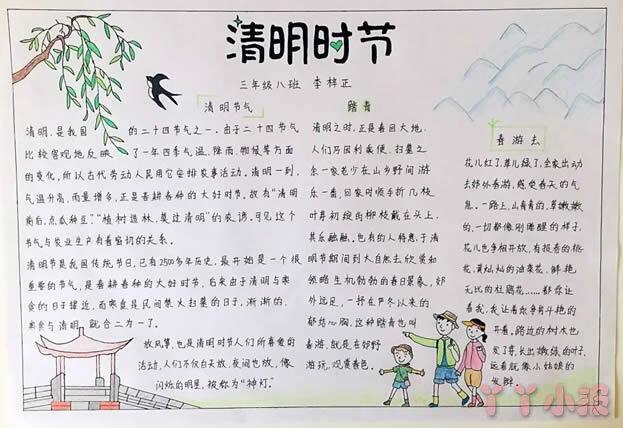 清明时节
三年级八班 李梓正
清明节气
清明,是我国的二十四节气之一。由于二十四节气
比较客观地反映了一年四季气温、降雨、物候等方面
的变化,所以古代劳动人民用它安排农事活动。清明一到,
气温升高,雨量增多,正是春耕春种的大好时节。故有“清明
前后,点瓜种豆”“植树造林,莫过清明”的农谚。可见这个
节气与农业生产有着密切的关系。
清明节是我国传统节日,已有2500多年历史,最开始是一个很
重要的节气,是春耕春种的大好时节,后来由于清明与寒
食的日子接近,而寒食是民间禁火扫墓的日子,渐渐的,
寒食与清明就合二为一了。
放风筝,也是清明时节人们所喜爱的
活动,人们不仅白天放,夜间也放,像
闪烁的明星,被称为“神灯”。
踏青
清明之时,正是春回大地,
人们乃因利乘便,扫墓之
余一家老少在山乡野间游
乐一番,回家时顺手折几枝
叶芽初绽的柳枝戴在头上,
其乐融融。也有的人特意于清
明节期间到大自然去欣赏和
领略生机勃勃的春日景象,郊
外远足,一抒在严冬以来的
郁结心胸,这种踏青也叫
春游,就是在郊野
游玩,观赏春色。
春游去
花儿红了,草儿绿了,全家出动
去郊外春游,感受春天的气
息。一路上,山青青的,草嫩嫩
的,一切都像刚睡醒的样子,
花儿也争相开放,有报春的桃
花,黄灿灿的油菜花,鲜艳
无比的杜鹃花……都你让
着我,我让着你争奇斗艳的
开着。路边的树木也
发了芽,长出嫩绿的叶子,
远看就像小姑娘的
发辫。
丫丫小报